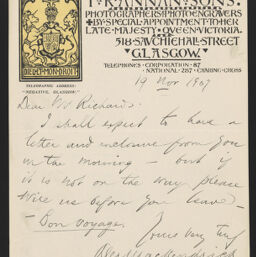 T. & R. ANNAN & SONS.
PHOTOGRAPHERS PHOTO ENGRAVERS
BY SPECIAL APPOINTMENT TO HER
LATE MAJESTY QUEEN VICTORIA.
518 SAUCHIEHALL STREET
GLASGOW
DIEU ET MON DROIT
TELEGRAPHIC ADDRESS:
"NEGATIVE, GLASGOW."
TELEPHONES - CORPORATION - 87
NATIONAL - 227 - CHARING - CROSS
19 Nov 1907
Dear Mr Richards.
I shall expect to have a
letter and enclosure from you
in the morning - but if
it is not on the way please
wire us before you leave -
- Bon voyage.
Yours very truly